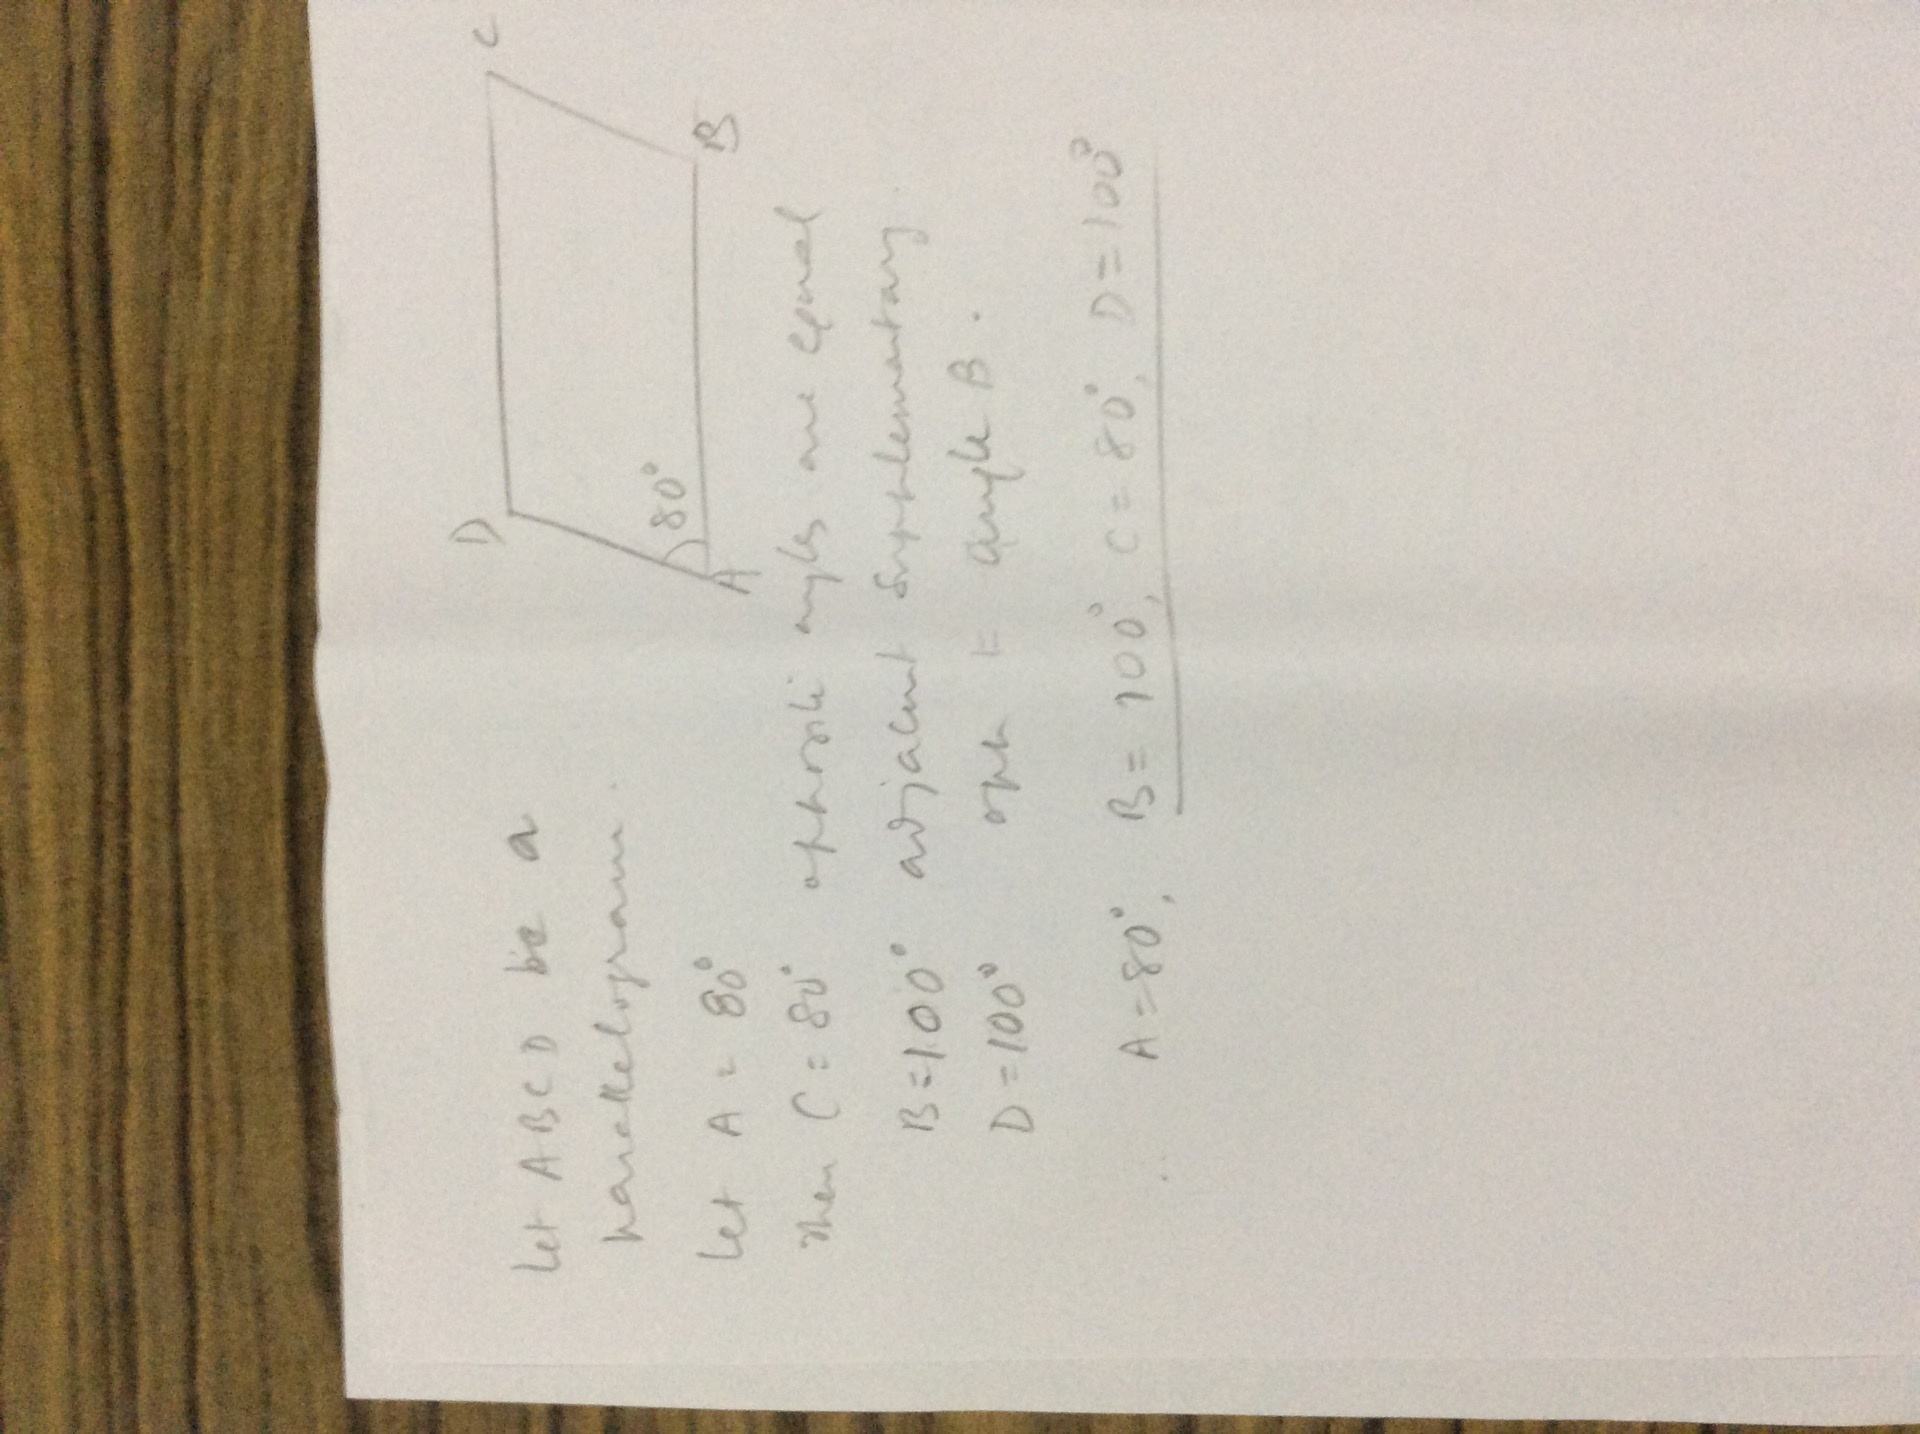 Let ABCD be a
parallelogram.
D
C
80°
A
B
Let A = 80°
Then C = 80° opposite angles are equal
B = 100° adjacent supplementary.
D = 100° opp = angle B.
∴ A = 80°, B = 100°, C = 80°, D = 100°